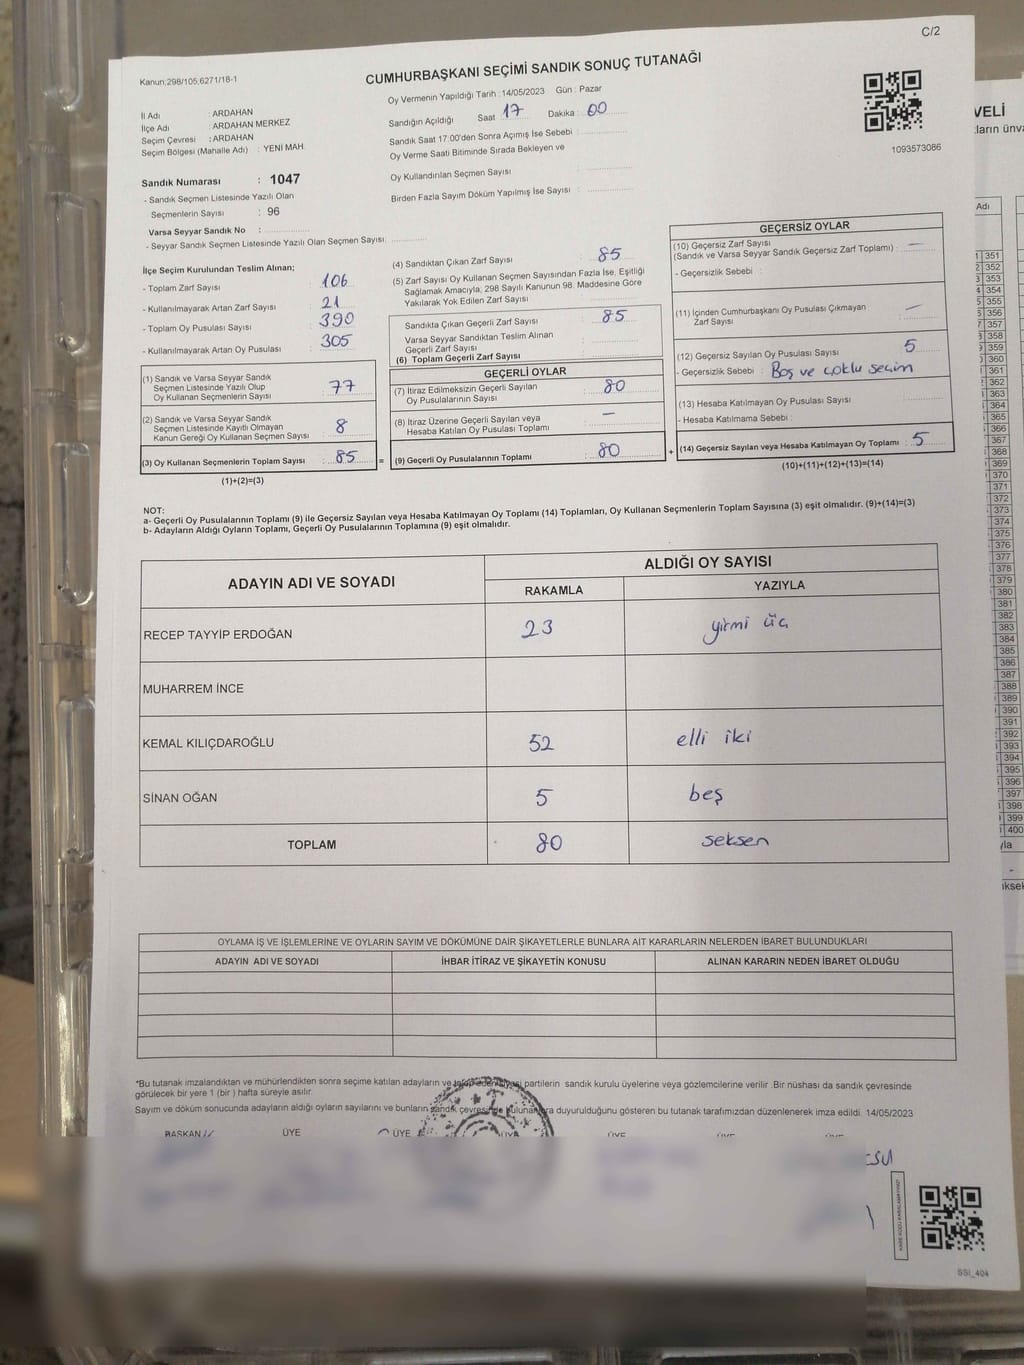 C/2
Kanun:298/105;6271/18-1
CUMHURBAŞKANI SEÇİMİ SANDIK SONUÇ TUTANAĞI
Oy Vermenin Yapıldığı Tarih :14/05/2023 Gün : Pazar
İl Adı : ARDAHAN
İlçe Adı : ARDAHAN MERKEZ
Seçim Çevresi : ARDAHAN
Seçim Bölgesi (Mahalle Adı) : YENİ MAH.
Sandığın Açıldığı Saat 17 Dakika : 00
Sandık Saat 17:00'den Sonra Açımış İse Sebebi :
Oy Verme Saati Bitiminde Sırada Bekleyen ve
Oy Kullandırılan Seçmen Sayısı :
Birden Fazla Sayım Döküm Yapılmış İse Sayısı :
1093573086
Sandık Numarası : 1047
- Sandık Seçmen Listesinde Yazılı Olan
Seçmenlerin Sayısı : 96
Varsa Seyyar Sandık No :
- Seyyar Sandık Seçmen Listesinde Yazılı Olan Seçmen Sayısı:
İlçe Seçim Kurulundan Teslim Alınan;
- Toplam Zarf Sayısı : 106
- Kullanılmayarak Artan Zarf Sayısı : 21
- Toplam Oy Pusulası Sayısı : 390
- Kullanılmayarak Artan Oy Pusulası : 305
(1) Sandık ve Varsa Seyyar Sandık
Seçmen Listesinde Yazılı Olup
Oy Kullanan Seçmenlerin Sayısı : 77
(2) Sandık ve Varsa Seyyar Sandık
Seçmen Listesinde Kayıtlı Olmayan
Kanun Gereği Oy Kullanan Seçmen Sayısı : 8
(3) Oy Kullanan Seçmenlerin Toplam Sayısı : 85 =
(1)+(2)=(3)
(4) Sandıktan Çıkan Zarf Sayısı : 85
(5) Zarf Sayısı Oy Kullanan Seçmen Sayısından Fazla İse, Eşitliği
Sağlamak Amacıyla; 298 Sayılı Kanunun 98. Maddesine Göre
Yakılarak Yok Edilen Zarf Sayısı :
Sandıkta Çıkan Geçerli Zarf Sayısı : 85
Varsa Seyyar Sandıktan Teslim Alınan
Geçerli Zarf Sayısı
(6) Toplam Geçerli Zarf Sayısı
GEÇERLİ OYLAR
(7) İtiraz Edilmeksizin Geçerli Sayılan
Oy Pusulalarının Sayısı : 80
(8) İtiraz Üzerine Geçerli Sayılan veya
Hesaba Katılan Oy Pusulası Toplamı : —
(9) Geçerli Oy Pusulalarının Toplamı : 80 +
GEÇERSİZ OYLAR
(10) Geçersiz Zarf Sayısı
(Sandık ve Varsa Seyyar Sandık Geçersiz Zarf Toplamı) : —
- Geçersizlik Sebebi :
(11) İçinden Cumhurbaşkanı Oy Pusulası Çıkmayan
Zarf Sayısı : —
(12) Geçersiz Sayılan Oy Pusulası Sayısı : 5
- Geçersizlik Sebebi : Boş ve çoklu seçim
(13) Hesaba Katılmayan Oy Pusulası Sayısı :
- Hesaba Katılmama Sebebi :
(14) Geçersiz Sayılan veya Hesaba Katılmayan Oy Toplamı : 5
(10)+(11)+(12)+(13)=(14)
NOT:
a- Geçerli Oy Pusulalarının Toplamı (9) ile Geçersiz Sayılan veya Hesaba Katılmayan Oy Toplamı (14) Toplamları, Oy Kullanan Seçmenlerin Toplam Sayısına (3) eşit olmalıdır. (9)+(14)=(3)
b- Adayların Aldığı Oyların Toplamı, Geçerli Oy Pusulalarının Toplamına (9) eşit olmalıdır.
ADAYIN ADI VE SOYADI
ALDIĞI OY SAYISI
RAKAMLA YAZIYLA
RECEP TAYYİP ERDOĞAN 23 yirmi üç
MUHARREM İNCE
KEMAL KILIÇDAROĞLU 52 elli iki
SİNAN OĞAN 5 beş
TOPLAM 80 seksen
OYLAMA İŞ VE İŞLEMLERİNE VE OYLARIN SAYIM VE DÖKÜMÜNE DAİR ŞİKAYETLERLE BUNLARA AİT KARARLARIN NELERDEN İBARET BULUNDUKLARI
ADAYIN ADI VE SOYADI İHBAR İTİRAZ VE ŞİKAYETİN KONUSU ALINAN KARARIN NEDEN İBARET OLDUĞU
*Bu tutanak imzalandıktan ve mühürlendikten sonra seçime katılan adayların ve talep eden siyasi partilerin sandık kurulu üyelerine veya gözlemcilerine verilir .Bir nüshası da sandık çevresinde
görülecek bir yere 1 (bir ) hafta süreyle asılır.
Sayım ve döküm sonucunda adayların aldığı oyların sayılarını ve bunların sandık çevresinde bulunanlara duyurulduğunu gösteren bu tutanak tarafımızdan düzenlenerek imza edildi. 14/05/2023
BAŞKAN ÜYE ÜYE ÜYE ÜYE ÜYE
SSI_404
VELİ
ların ünva
Adı
351
352
353
354
355
356
357
358
359
360
361
362
363
364
365
366
367
368
369
370
371
372
373
374
375
376
377
378
379
380
381
382
383
384
385
386
387
388
389
390
391
392
393
394
395
396
397
398
399
400